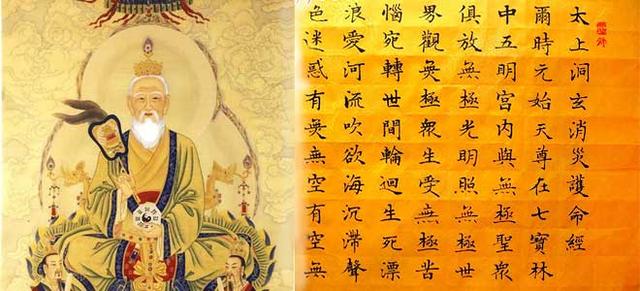 太上洞玄消災護命經
爾時元始天尊在七寶林
中五明宮內與無極聖衆
俱放無極光明照無極世
界觀無極衆生受無極苦
惱宛轉世間輪迴生死漂
浪愛河流吹欲海沉滯聲
色迷惑有無無空有空無